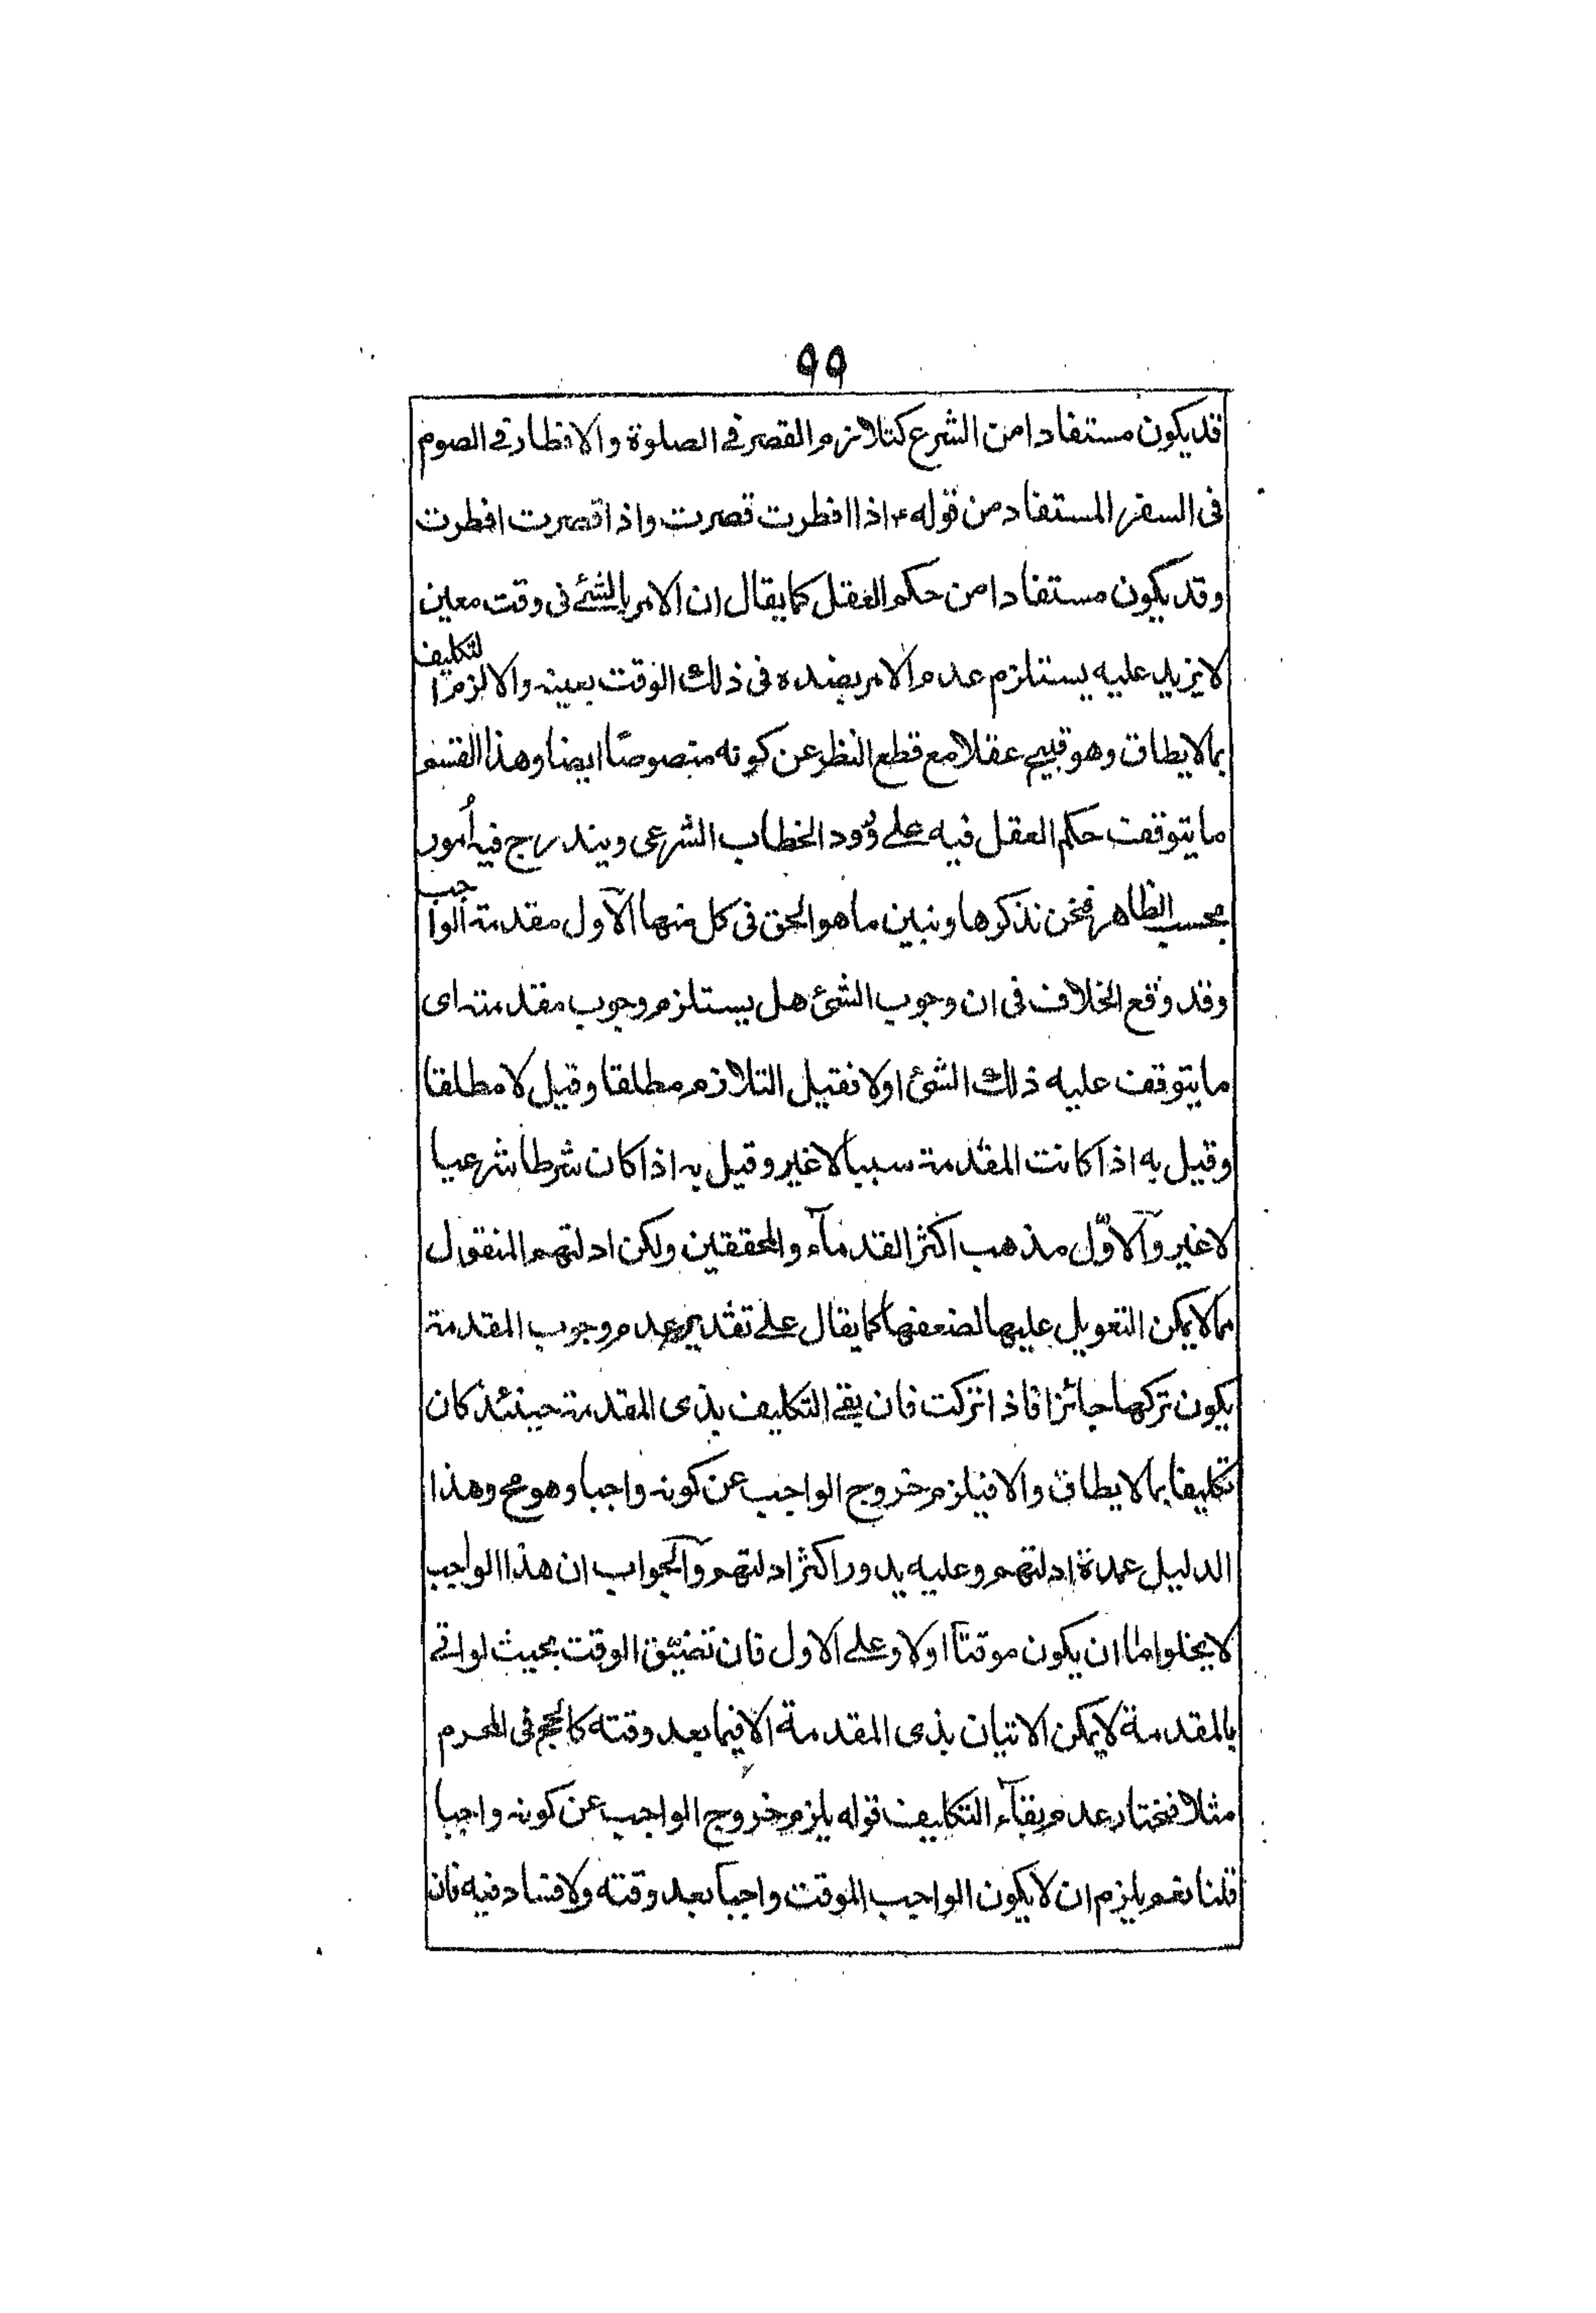 ٩٩
قد يكون مستفادا من الشرع كتلازم القصر في الصلوة والافطار في الصوم
في السفر المستفاد من قوله ۴ اذا افطرت قصرت واذا قصرت افطرت
وقد يكون مستفادا من حكم العقل كما يقال ان الامر بالشئ في وقت معين
لا يزيد عليه يستلزم عدم الامر بضده في ذلك الوقت بعينه والا لزم التكليف
بما لا يطاق وهو قبيح عقلا مع قطع النظر عن كونه منصوصًا ايضا وهذا القسم
ما يتوقف حكم العقل فيه على ورود الخطاب الشرعي ويندرج فيه أمور
بحسب الظاهر فنحن نذكرها ونبين ما هو الحق في كل منها الاول مقدمة الواجب
وقد وقع الخلاف في ان وجوب الشئ هل يستلزم وجوب مقدمته اى
ما يتوقف عليه ذلك الشئ اولا فقيل التلازم مطلقا وقيل لا مطلقا
وقيل به اذا كانت المقدمة سببا لا غير وقيل به اذا كان شرطا شرعيا
لا غير والاوّل مذهب اكثر القدمآء والمحققين ولكن ادلتهم المنقول
مما لا يمكن التعويل عليها لضعفها كما يقال على تقدير عدم وجوب المقدمة
يكون تركها جائزا فاذا تركت فان بقى التكليف بذى المقدمة حينئذ كان
تكليفا بما لا يطاق والا فيلزم خروج الواجب عن كونه واجبا وهو مح وهذا
الدليل عمدة ادلتهم وعليه يدور اكثر ادلتهم والجواب ان هذا الواجب
لا يخلو اما ان يكون موقتا اولا وعلى الاول فان تضيّق الوقت بحيث لو اتى
بالمقدمة لا يمكن الاتيان بذى المقدمة الا فيما بعد وقته كالحج في المحرم
مثلا فنختار عدم بقآء التكليف قوله يلزم خروج الواجب عن كونه واجبا
قلنا نعم يلزم ان لا يكون الواجب الموقت واجبا بعد وقته ولا فساد فيه فان